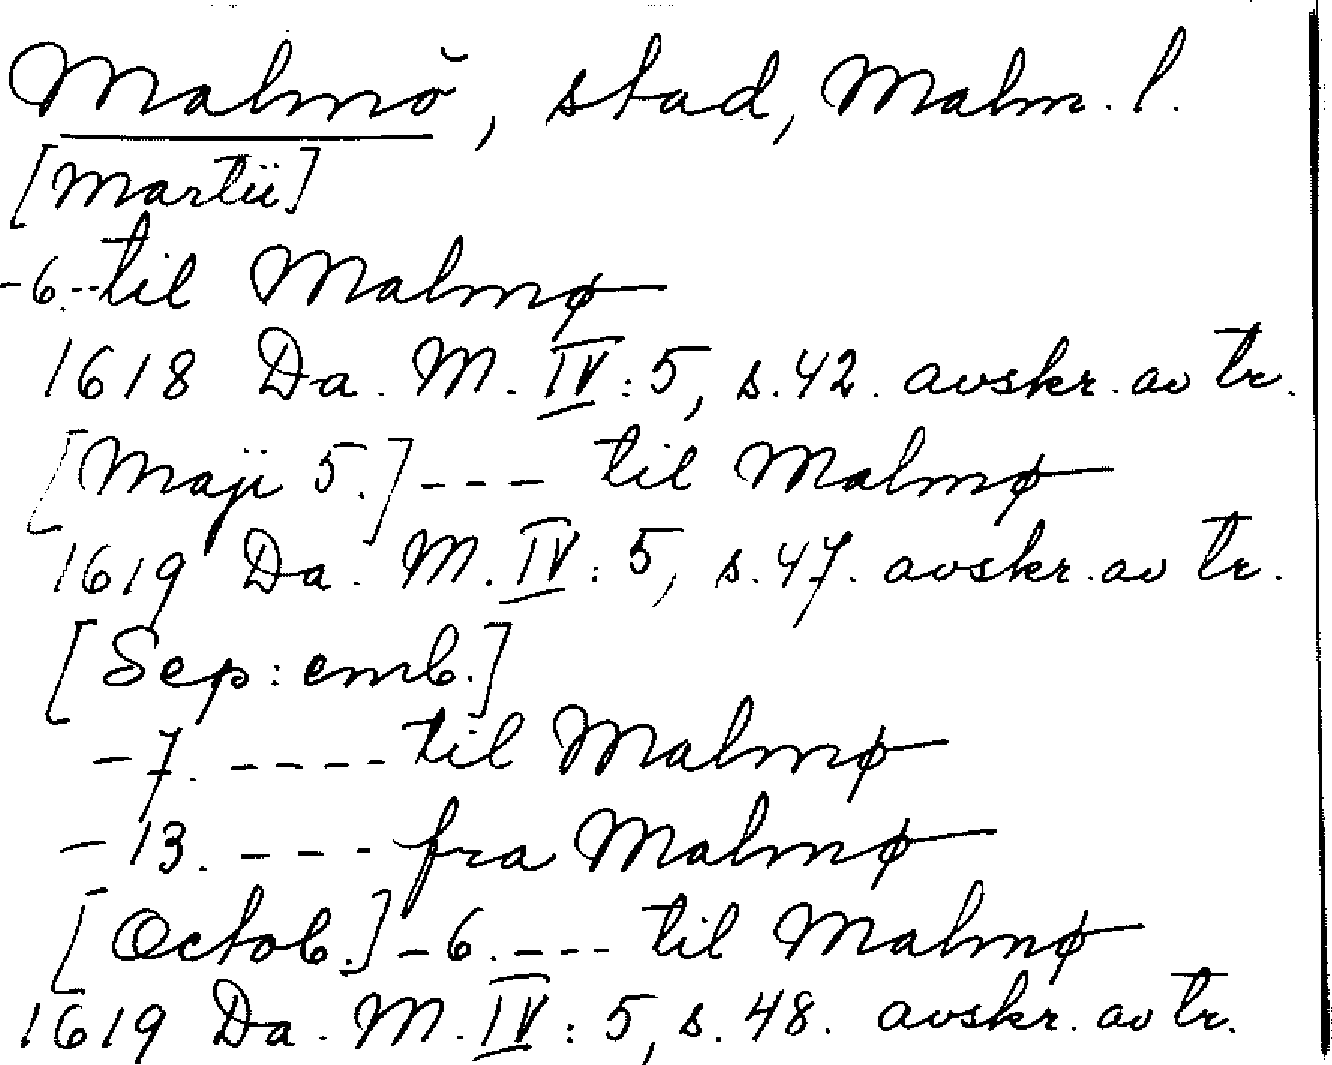 Malmö, stad, Malm. l.
[Martii]
-6.--til Malmø
1618 Da. M. IV:5, s.42. avskr. av tr.
[Maji 5.] --- til Malmø
1619 Da. M. IV:5, s.47. avskr. av tr.
[Sep:emb.]
-7. ---- til Malmø
-13. --- fra Malmø
[Octob.] -6. --- til Malmø
1619 Da. M. IV:5, s.48. avskr. av tr.